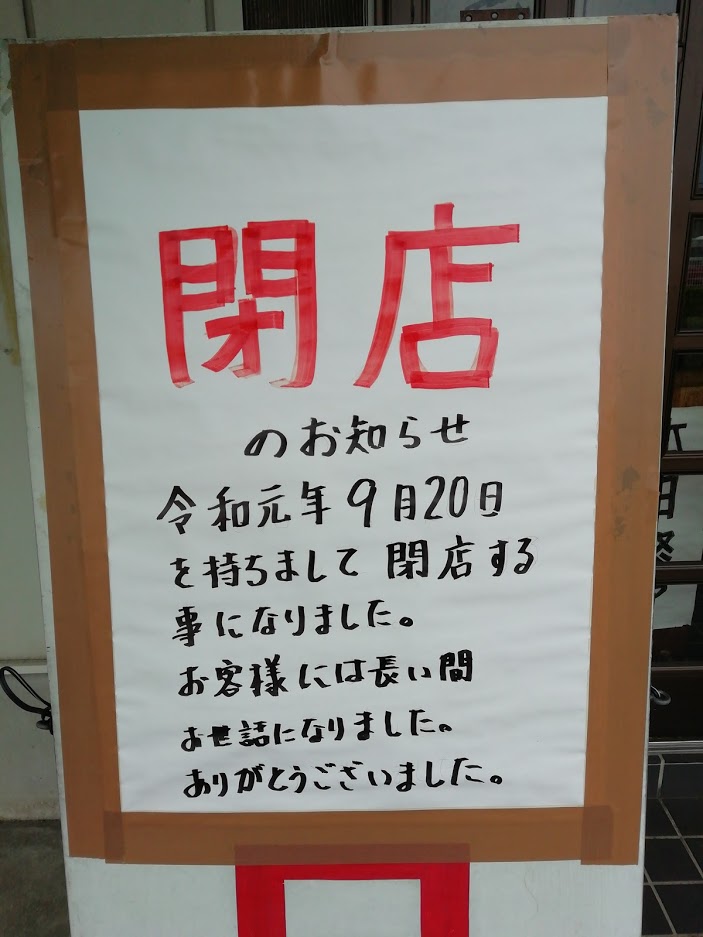 閉店
のお知らせ
令和元年9月20日
を持ちまして閉店する
事になりました。
お客様には長い間
お世話になりました。
ありがとうございました。